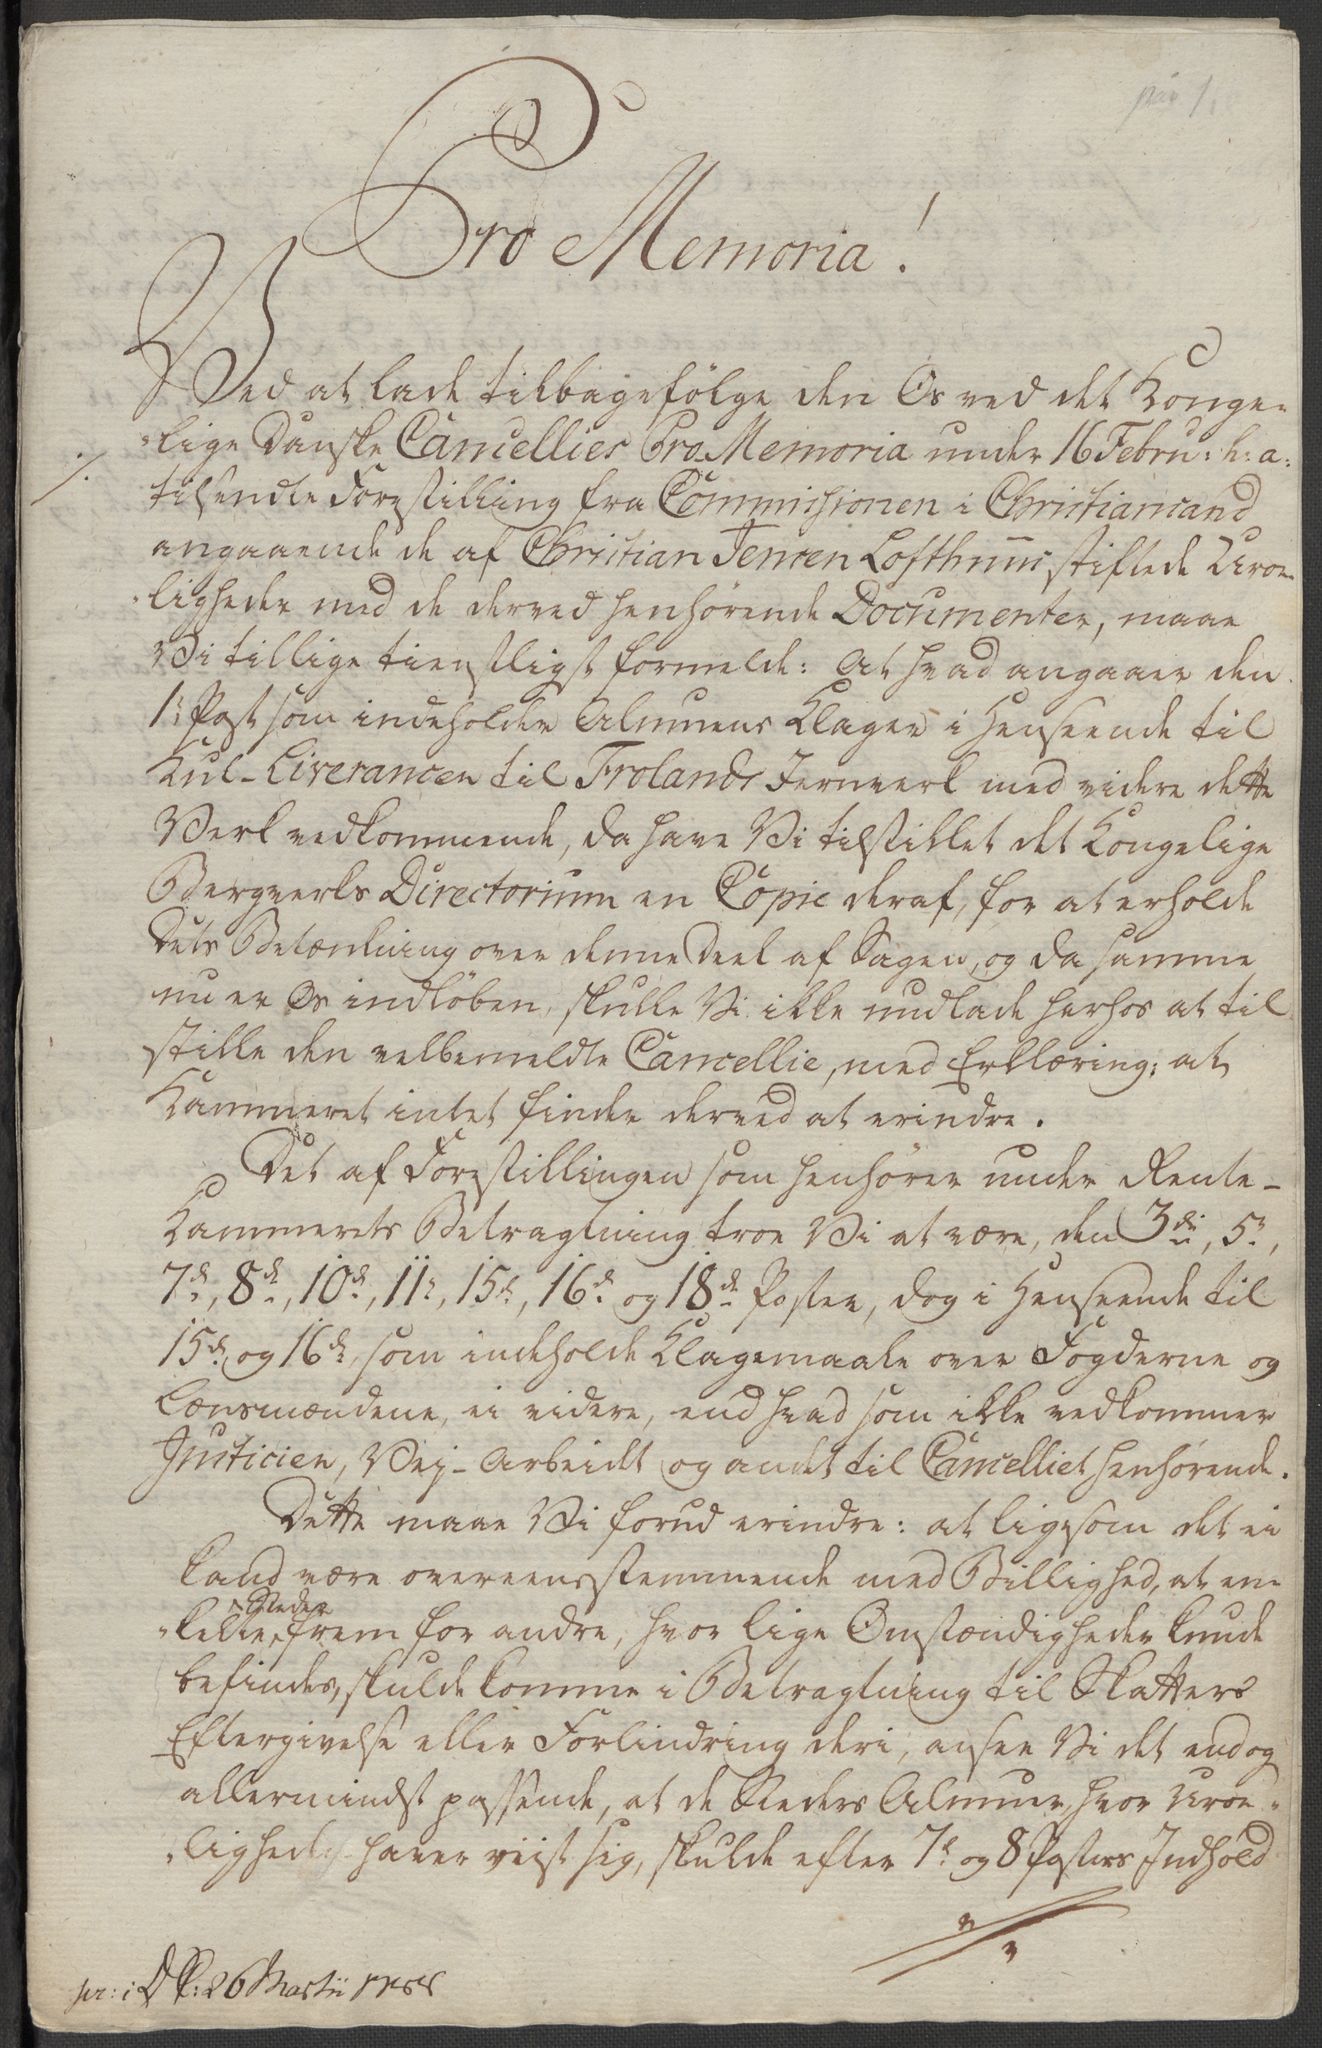 Pro Memoria!
Ved at lade tilbagefølge den Os ved det Konge-
-lige Danske Cancellies Pro Memoria under 16 Febru: h: a:
tilsendte Forestilling fra Commissionen i Christiansand
angaaende de af Christian Jensen Lofthuus stiftede Uroe-
-ligheder med de derved henhørende Documenter, maae
Vi tillige tienstligst formelde: At hvad angaaer den
1te Post som indeholder Almuens Klager i Henseende til
Kul-Liverancen til Frolands Jernverk med videre dette
Verk vedkommende, da have Vi tilstillet det Kongelige
Bergverks Directorium en Copie deraf, for at erholde
Dets Betænkning over denne Deel af Sagen, og da samme
nu er Os indløben, skulle Vi ikke undlade herhos at til
stille den velbemeldte Cancellie, med Erklæring; at
Kammeret intet finder derved at erindre.
Det af Forestillingen som henhører under Rente-
Kammerets Betragtning troe Vi at være, den 3die, 5te,
7de, 8de, 10de, 11te, 15de, 16de og 18de Poster, dog i Henseende til
15de og 16de, som indeholde Klagemaale over Fogderne og
Lensmændene, ei videre, end hvad som ikke vedkommer
Justicien, Vej-Arbeidet og andet til Cancelliet henhørende.
Dette maae Vi forud erindre: at ligesom det ei
kand være overeensstemmende med Billighed, at en-
-kelte Steder frem for andre, hvor lige Omstændigheder kunde
befindes, skulde komme i Betragtning til Skatters
Eftergivelse eller Forlindring deri, ansee Vi det endog
allermindst passende, at de Steders Almuer, hvor Uroe-
-ligheder haver viist sig, skulde efter 7de og 8 Posters Indhold
pr: i DK: 26 Martii